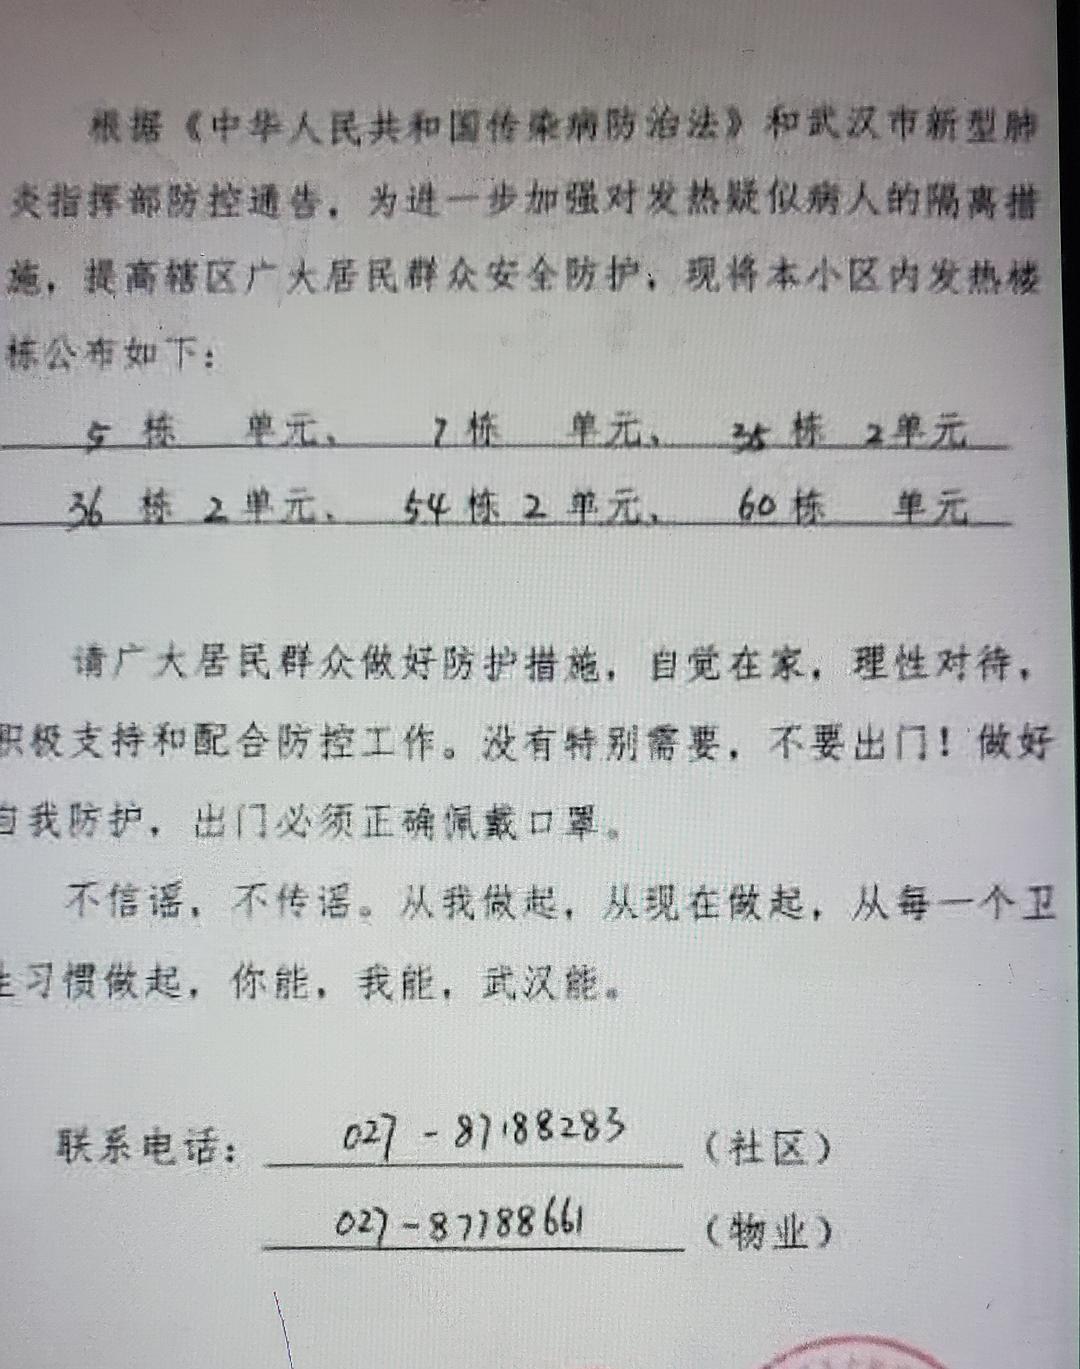 根据《中华人民共和国传染病防治法》和武汉市新型肺
炎指挥部防控通告，为进一步加强对发热疑似病人的隔离措
施，提高辖区广大居民群众安全防护，现将本小区内发热楼
栋公布如下：
5 栋 单元、 7 栋 单元、 35 栋 2 单元
36 栋 2 单元、 54 栋 2 单元、 60 栋 单元
请广大居民群众做好防护措施，自觉在家，理性对待，
积极支持和配合防控工作。没有特别需要，不要出门！做好
自我防护，出门必须正确佩戴口罩。
不信谣，不传谣。从我做起，从现在做起，从每一个卫
生习惯做起，你能，我能，武汉能。
联系电话： 027-87188283 （社区）
027-87788661 （物业）